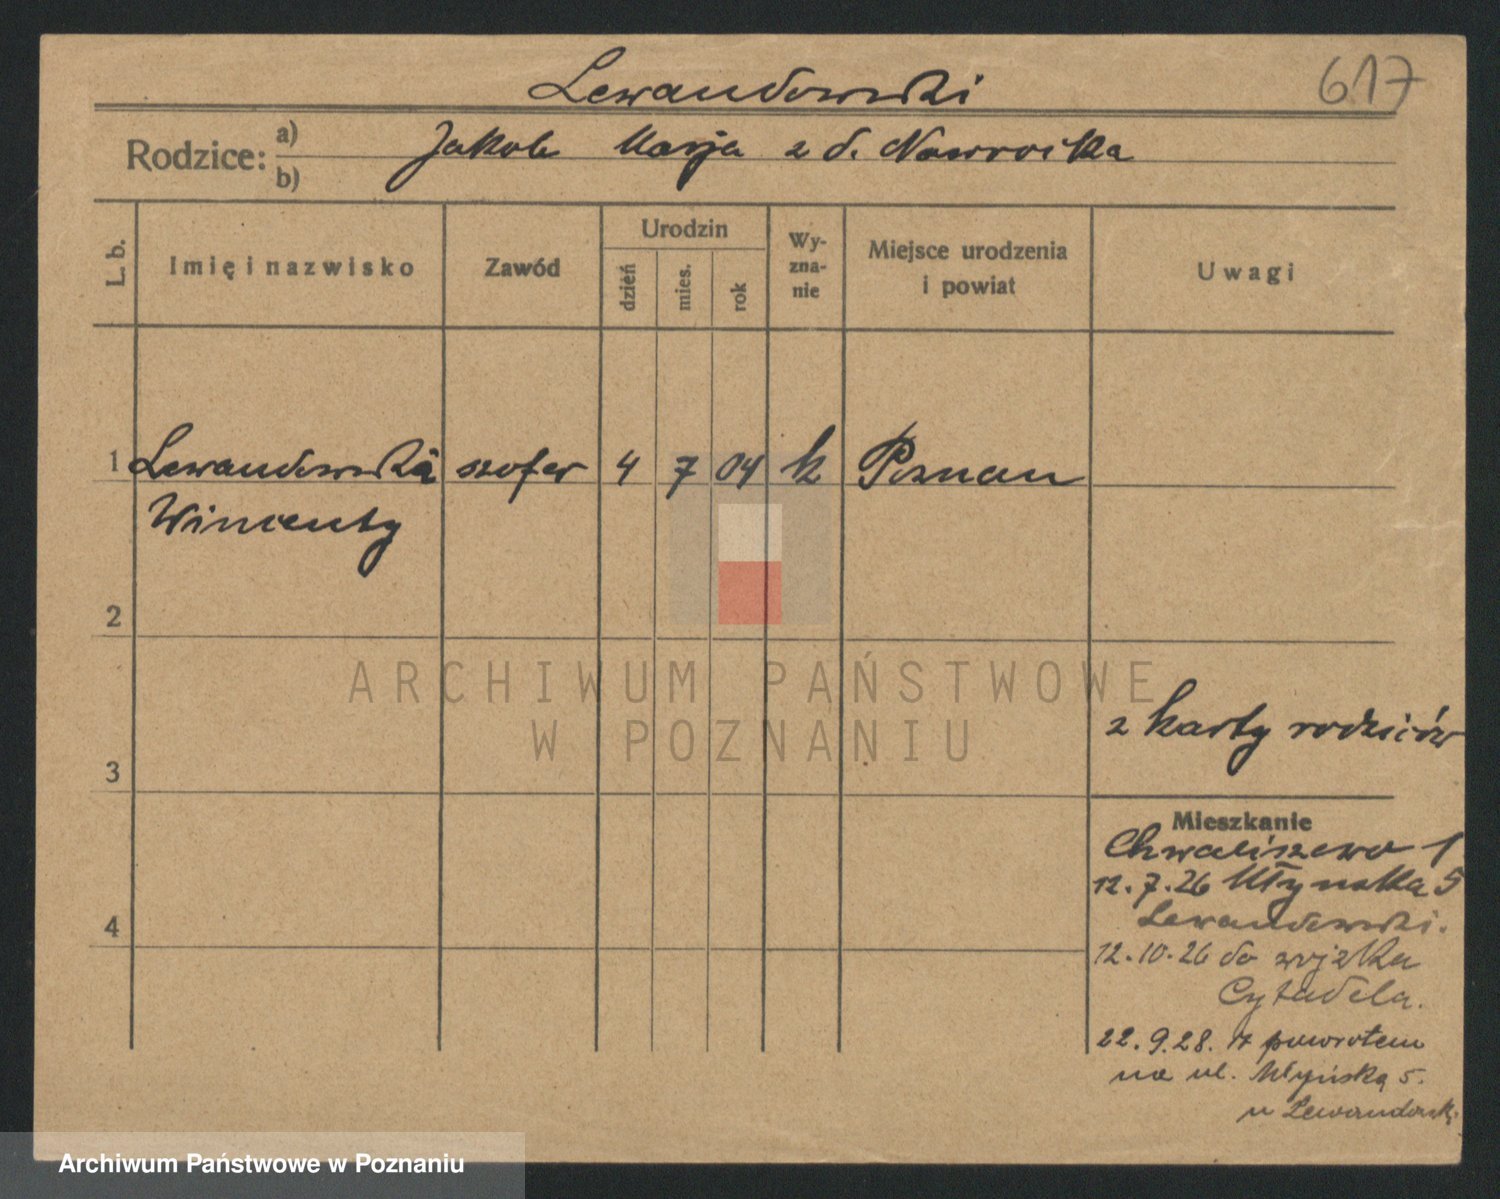 Lewandowski
617
Rodzice: a) b)
Jakob Marja z d. Nawrocka
L. b.
Imię i nazwisko
Zawód
Urodzin
dzień
mies.
rok
Wy-
zna-
nie
Miejsce urodzenia
i powiat
Uwagi
1 Lewandowski szofer 4 7 04 k Poznan
Wincenty
2
ARCHIWUM PAŃSTWOWE
W POZNANIU
z karty rodziców
3
Mieszkanie
Chwaliszewo 1
12.7.26 Młynska 5
Lewandowski.
4
12.10.26 do wojska
Cytadela.
22.9.28. z powrotem
na ul. Młyńską 5.
u Lewandowski
Archiwum Państwowe w Poznaniu